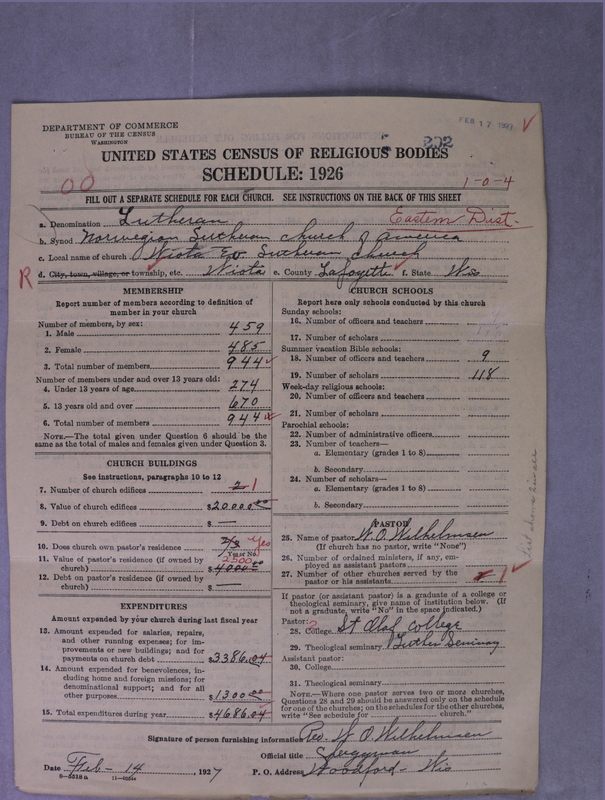 DEPARTMENT OF COMMERCE
BUREAU OF THE CENSUS
WASHINGTON
FEB 17 1927
202
UNITED STATES CENSUS OF RELIGIOUS BODIES
SCHEDULE: 1926
1-0-4
FILL OUT A SEPARATE SCHEDULE FOR EACH CHURCH. SEE INSTRUCTIONS ON THE BACK OF THIS SHEET
a. Denomination Lutheran
Eastern Dist.
b. Synod Norwegian Lutheran church of america
c. Local name of church Wiota Ev Lutheran church
R d. City, town, village, or township, etc. Wiota e. County Lafayette f. State Wis
MEMBERSHIP
Report number of members according to definition of
member in your church
Number of members, by sex:
1. Male 459
2. Female 485
3. Total number of members 944
Number of members under and over 13 years old:
4. Under 13 years of age 274
5. 13 years old and over 670
6. Total number of members 944
NOTE.—The total given under Question 6 should be the
same as the total of males and females given under Question 3.
CHURCH BUILDINGS
See instructions, paragraphs 10 to 12
7. Number of church edifices 2 1
8. Value of church edifices $20000.00
9. Debt on church edifices $ —
10. Does church own pastor's residence 2/3 Yes
Yes or No
11. Value of pastor's residence (if owned by
church) $4000.00 2500
12. Debt on pastor's residence (if owned by
church) $ —
EXPENDITURES
Amount expended by your church during last fiscal year
13. Amount expended for salaries, repairs,
and other running expenses; for im-
provements or new buildings; and for
payments on church debt $3386.04
14. Amount expended for benevolences, in-
cluding home and foreign missions; for
denominational support; and for all
other purposes $1300.00
15. Total expenditures during year $4686.04
CHURCH SCHOOLS
Report here only schools conducted by this church
Sunday schools:
16. Number of officers and teachers
17. Number of scholars
Summer vacation Bible schools:
18. Number of officers and teachers 9
19. Number of scholars 118
Week-day religious schools:
20. Number of officers and teachers
21. Number of scholars
Parochial schools:
22. Number of administrative officers
23. Number of teachers—
a. Elementary (grades 1 to 8)
b. Secondary
24. Number of scholars—
a. Elementary (grades 1 to 8)
b. Secondary
PASTOR
25. Name of pastor W. O. Wilhelmsen
(If church has no pastor, write "None")
26. Number of ordained ministers, if any, em-
ployed as assistant pastors
27. Number of other churches served by the
pastor or his assistants 1
If pastor (or assistant pastor) is a graduate of a college or
theological seminary, give name of institution below. (If
not a graduate, write "No" in the space indicated.)
Pastor:
28. College St Olaf College
29. Theological seminary Luther Seminary
Assistant pastor:
30. College
31. Theological seminary
NOTE.—Where one pastor serves two or more churches,
Questions 28 and 29 should be answered only on the schedule
for one of the churches; on the schedules for the other churches,
write "See schedule for church."
Signature of person furnishing information Rev. W O Wilhelmsen
Official title Clergyman
Date Feb - 14, 1927 P. O. Address Woodford - Wis